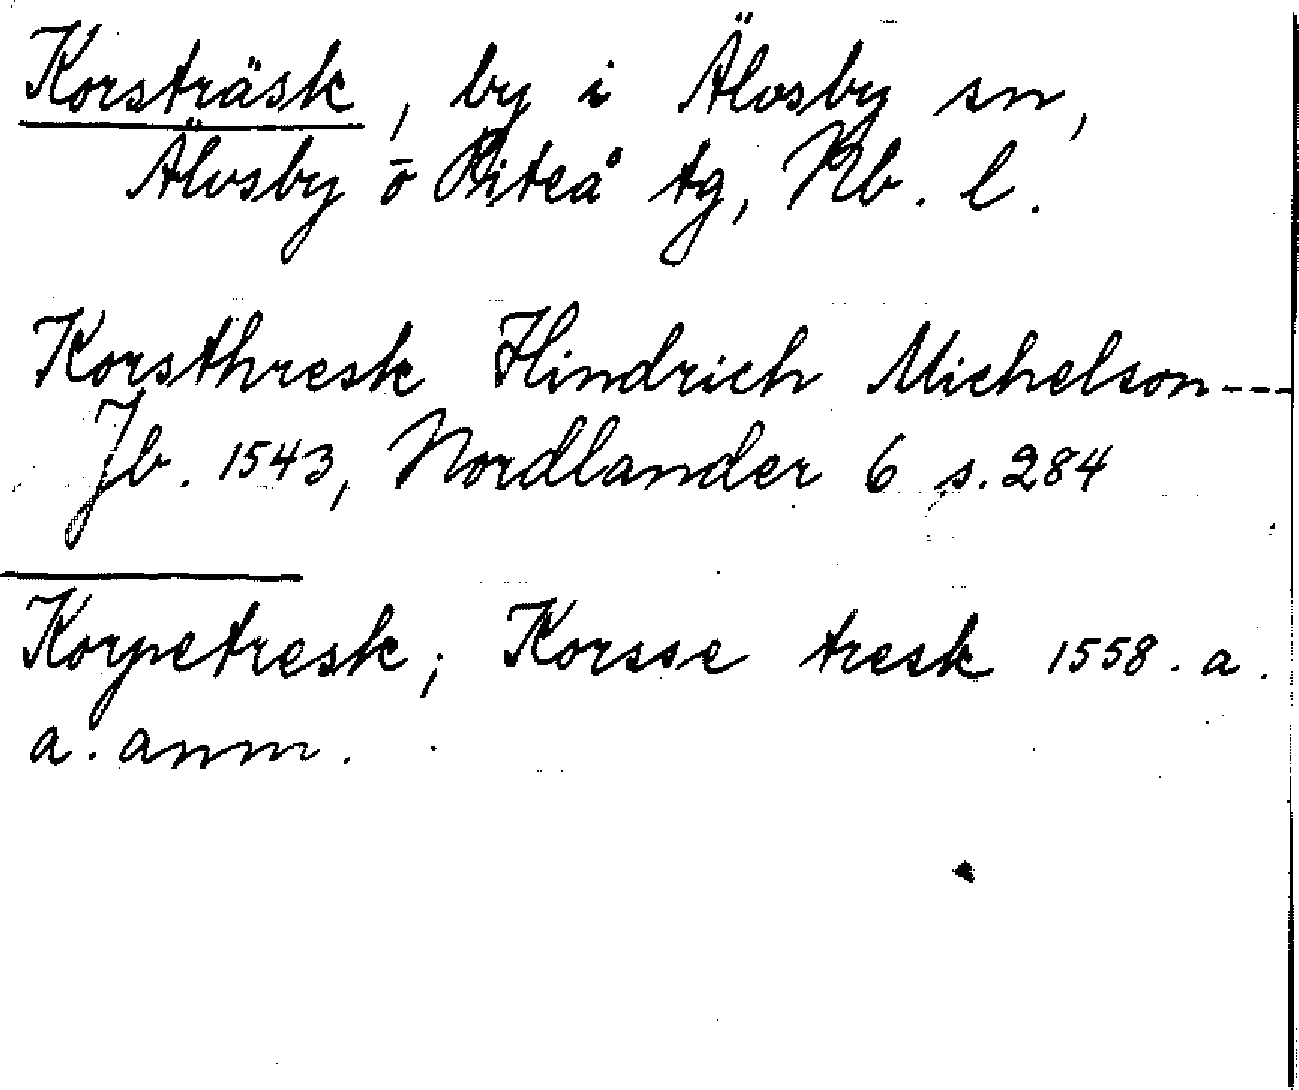 Korsträsk, by i Älvsby sn,
Älvsby o Piteå tg, Nb. l.
Korsthresk Hindrich Michelson---
Jb. 1543, Nordlander 6 s. 284
Korpetresk; Korsse tresk 1558. a.
a. anm.